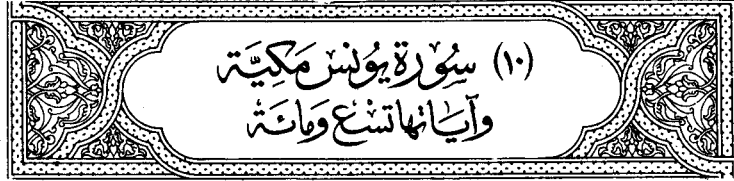 (١٠) سُورَة يُونسَ مَكيَّة
وَآيَاتهَا تسْع وَمائة